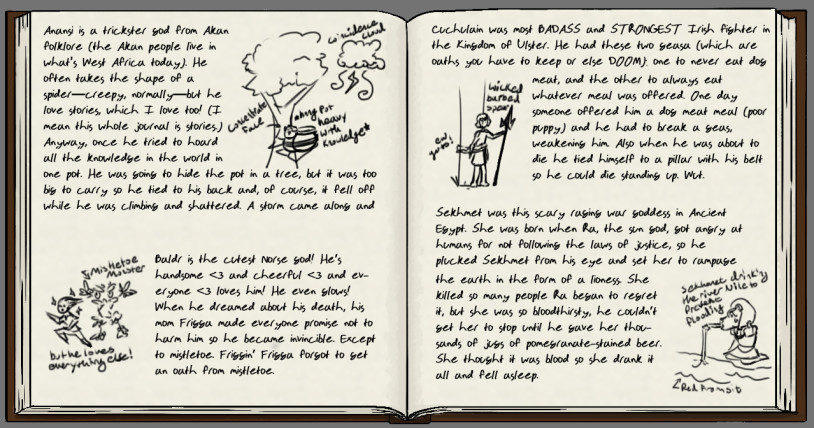 Anansi is a trickster god from Akan
folklore (the Akan people live in
what's West Africa today). He
often takes the shape of a
spider—creepy, normally—but he
love stories, which I love too! (I
mean this whole journal is stories.)
Anyway, once he tried to hoard
all the knowledge in the world in
one pot. He was going to hide the pot in a tree, but it was too
big to carry so he tied to his back and, of course, it fell off
while he was climbing and shattered. A storm came along and
coincidence
cloud
concentrate
face
whing pot
heavy
with
knowledge
Baldr is the cutest Norse god! He's
handsome <3 and cheerful <3 and ev-
eryone <3 loves him! He even glows!
When he dreamed about his death, his
mom Frigga made everyone promise not to
harm him so he became invincible. Except
to mistletoe. Friggin' Frigga forgot to get
an oath from mistletoe.
Mistletoe
Monster
but he loves
everything else!
Cuchulain was most BADASS and STRONGEST Irish fighter in
the Kingdom of Ulster. He had these two geasa (which are
oaths you have to keep or else DOOM): one to never eat dog
meat, and the other to always eat
whatever meal was offered. One day
someone offered him a dog meat meal (poor
puppy) and he had to break a geas,
weakening him. Also when he was about to
die he tied himself to a pillar with his belt
so he could die standing up. Wut.
wicked
barbed
spear
ew
guts!
Sekhmet was this scary raging war goddess in Ancient
Egypt. She was born when Ra, the sun god, got angry at
humans for not following the laws of justice, so he
plucked Sekhmet from his eye and set her to rampage
the earth in the form of a lioness. She
killed so many people Ra began to regret
it, but she was so bloodthirsty, he couldn't
get her to stop until he gave her thou-
sands of jugs of pomegranate-stained beer.
She thought it was blood so she drank it
all and fell asleep.
Sekhmet drinking
the river Nile to
prevent
flooding
Red from silt